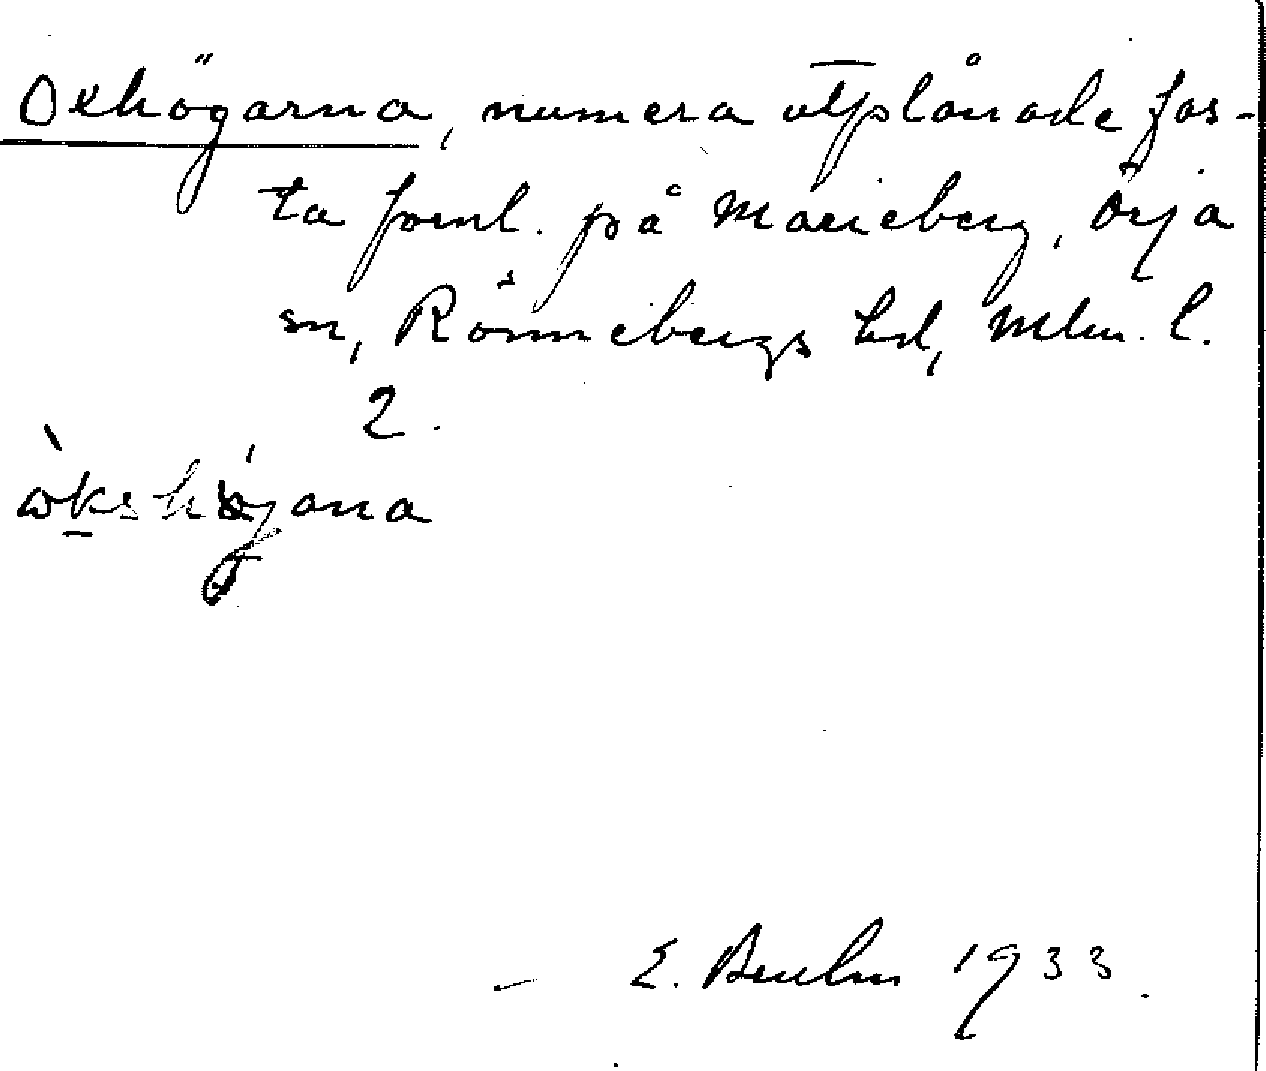 Oxhögarna, numera utplånade fas-
ta forml. på Marieberg, Örja
sn, Rönnebergs hd, Mlm. l.
2.
ökshöjana
E. 1933.